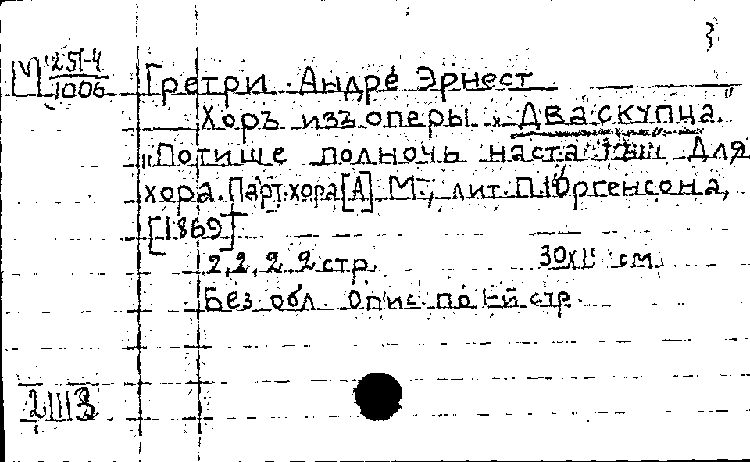 М 251-4
1006
Гретри Андре Эрнест
Хоръ изъ оперы „Два скупца"
„Потише полночь Для
хора. Парт. хора [А] М., лит. П. Юргенсона,
[1869]
2, 2, 2, 2 стр. см.
Без обл. Опис. по 1-й стр.